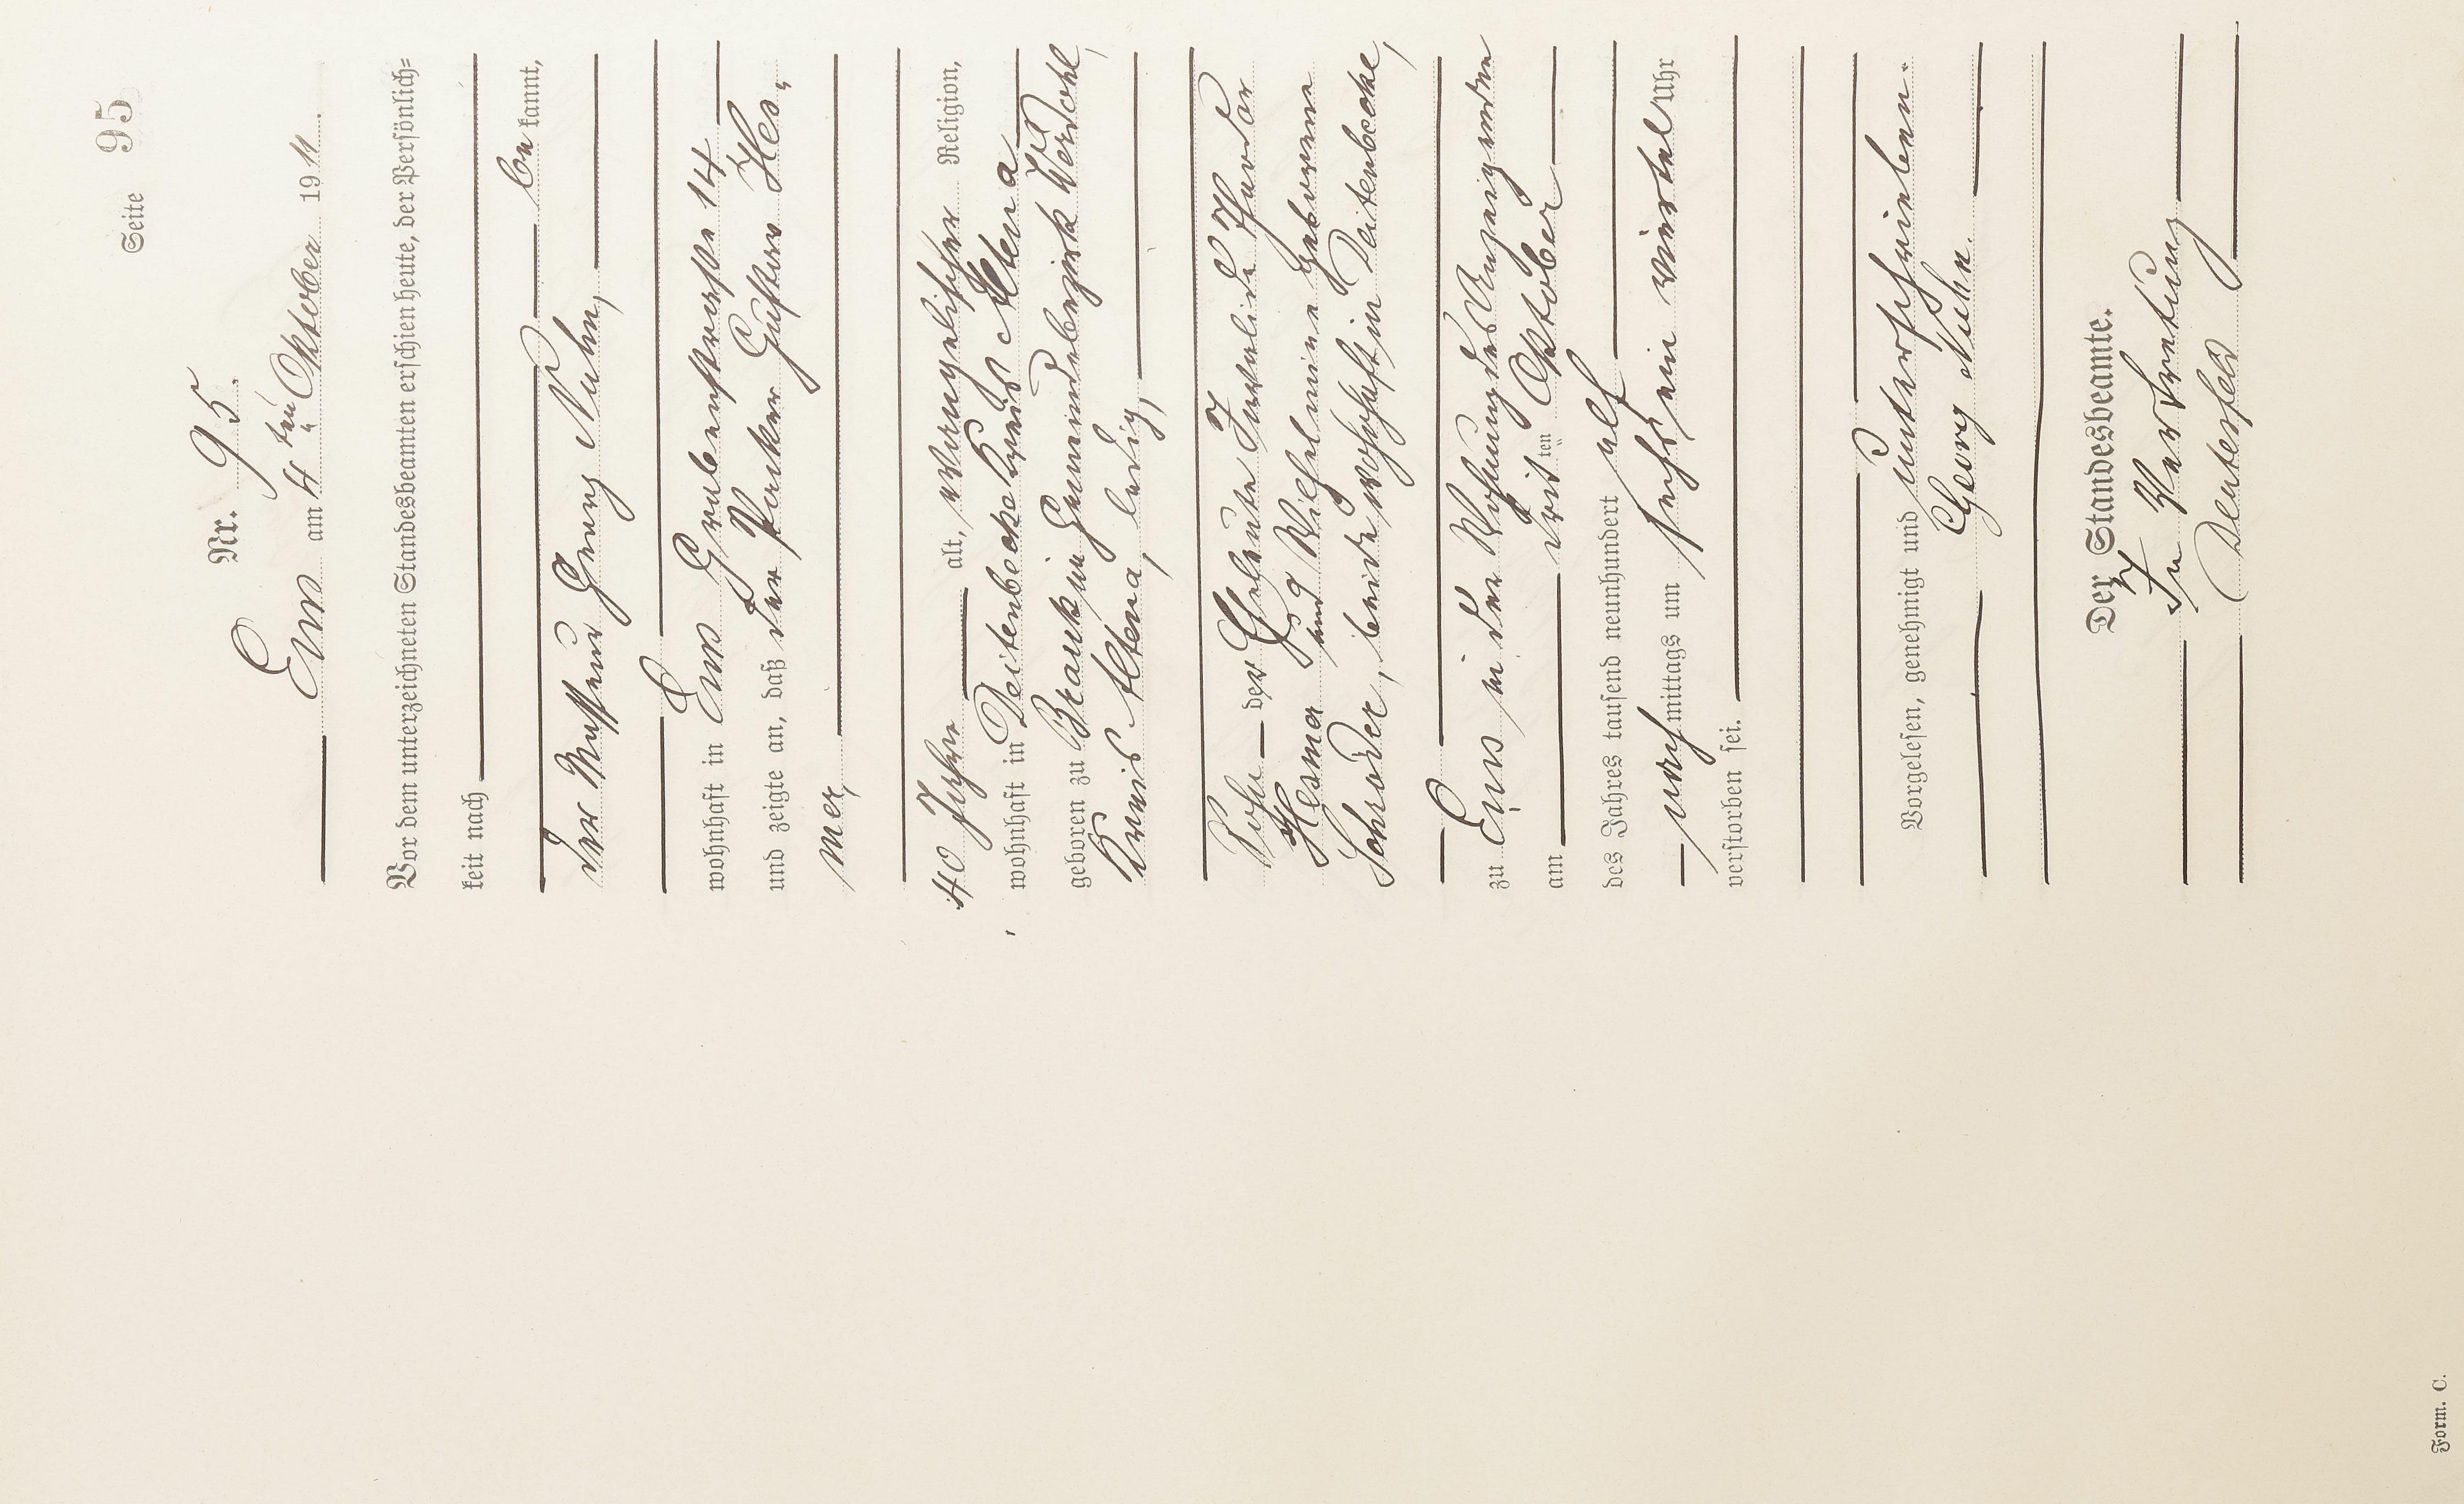 Seite 95
Nr. 95.
Ems am 4ten Oktober 1911.
Vor dem unterzeichneten Standesbeamten erschien heute, der Persönlich=
keit nach
bekannt,
der Georg Nuhn,
wohnhaft in Ems Grabenstrasse 14
und zeigte an, daß der Gustav Hes-
mer,
40 Jahre alt, evangelischer Religion,
wohnhaft in Deitenbecke Kreis Altena
geboren zu Brauk im Gemeindebezirk Werdohl,
Kreis Altena, ledig,
Sohn der Eheleute Invalide Theodor
Hesmer und Wilhelmine geborene
Schröder, beide wohnhaft in Deitenbecke,
zu Ems in der Wohnung des Anzeigenden
am dritten Oktober
des Jahres tausend neunhundert elf
nachmittags um sechs ein viertel Uhr
verstorben sei.
Vorgelesen, genehmigt und unterschrieben.
Georg Nuhn.
Der Standesbeamte.
In Vertretung
Deutesfeld
Form. C.